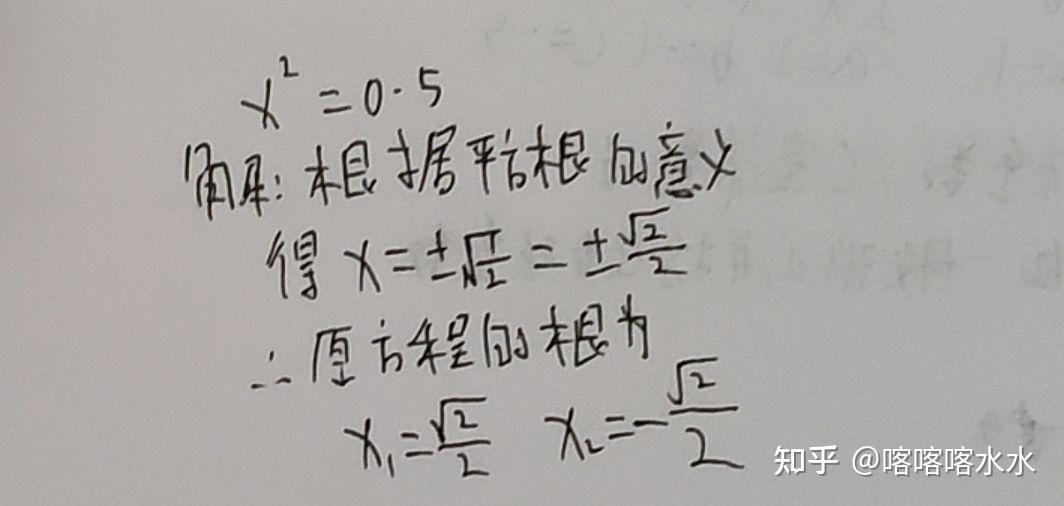 x² = 0.5
解: 根据平方根的意义
得 x = ±√(1/2) = ±√2/2
∴ 原方程的根为
x₁ = √2/2 x₂ = -√2/2
知乎 @喀喀喀水水